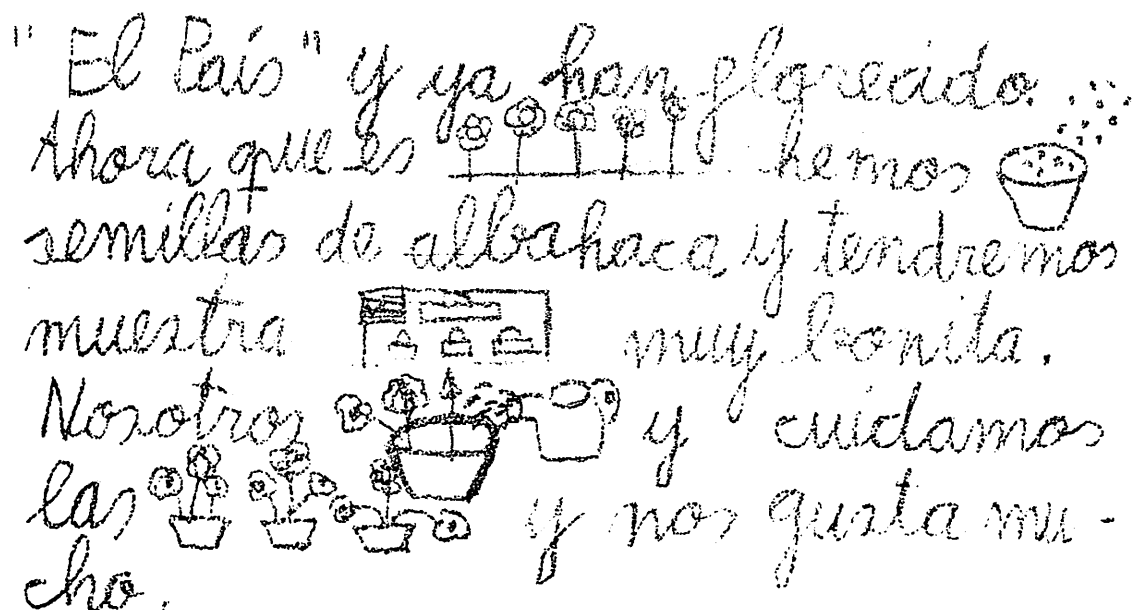 "El País" y ya han florecido.
Ahora que es hemos
semillas de albahaca y tendremos
muestra muy bonita.
Nosotros y cuidamos
las y nos gusta mu-
cho.